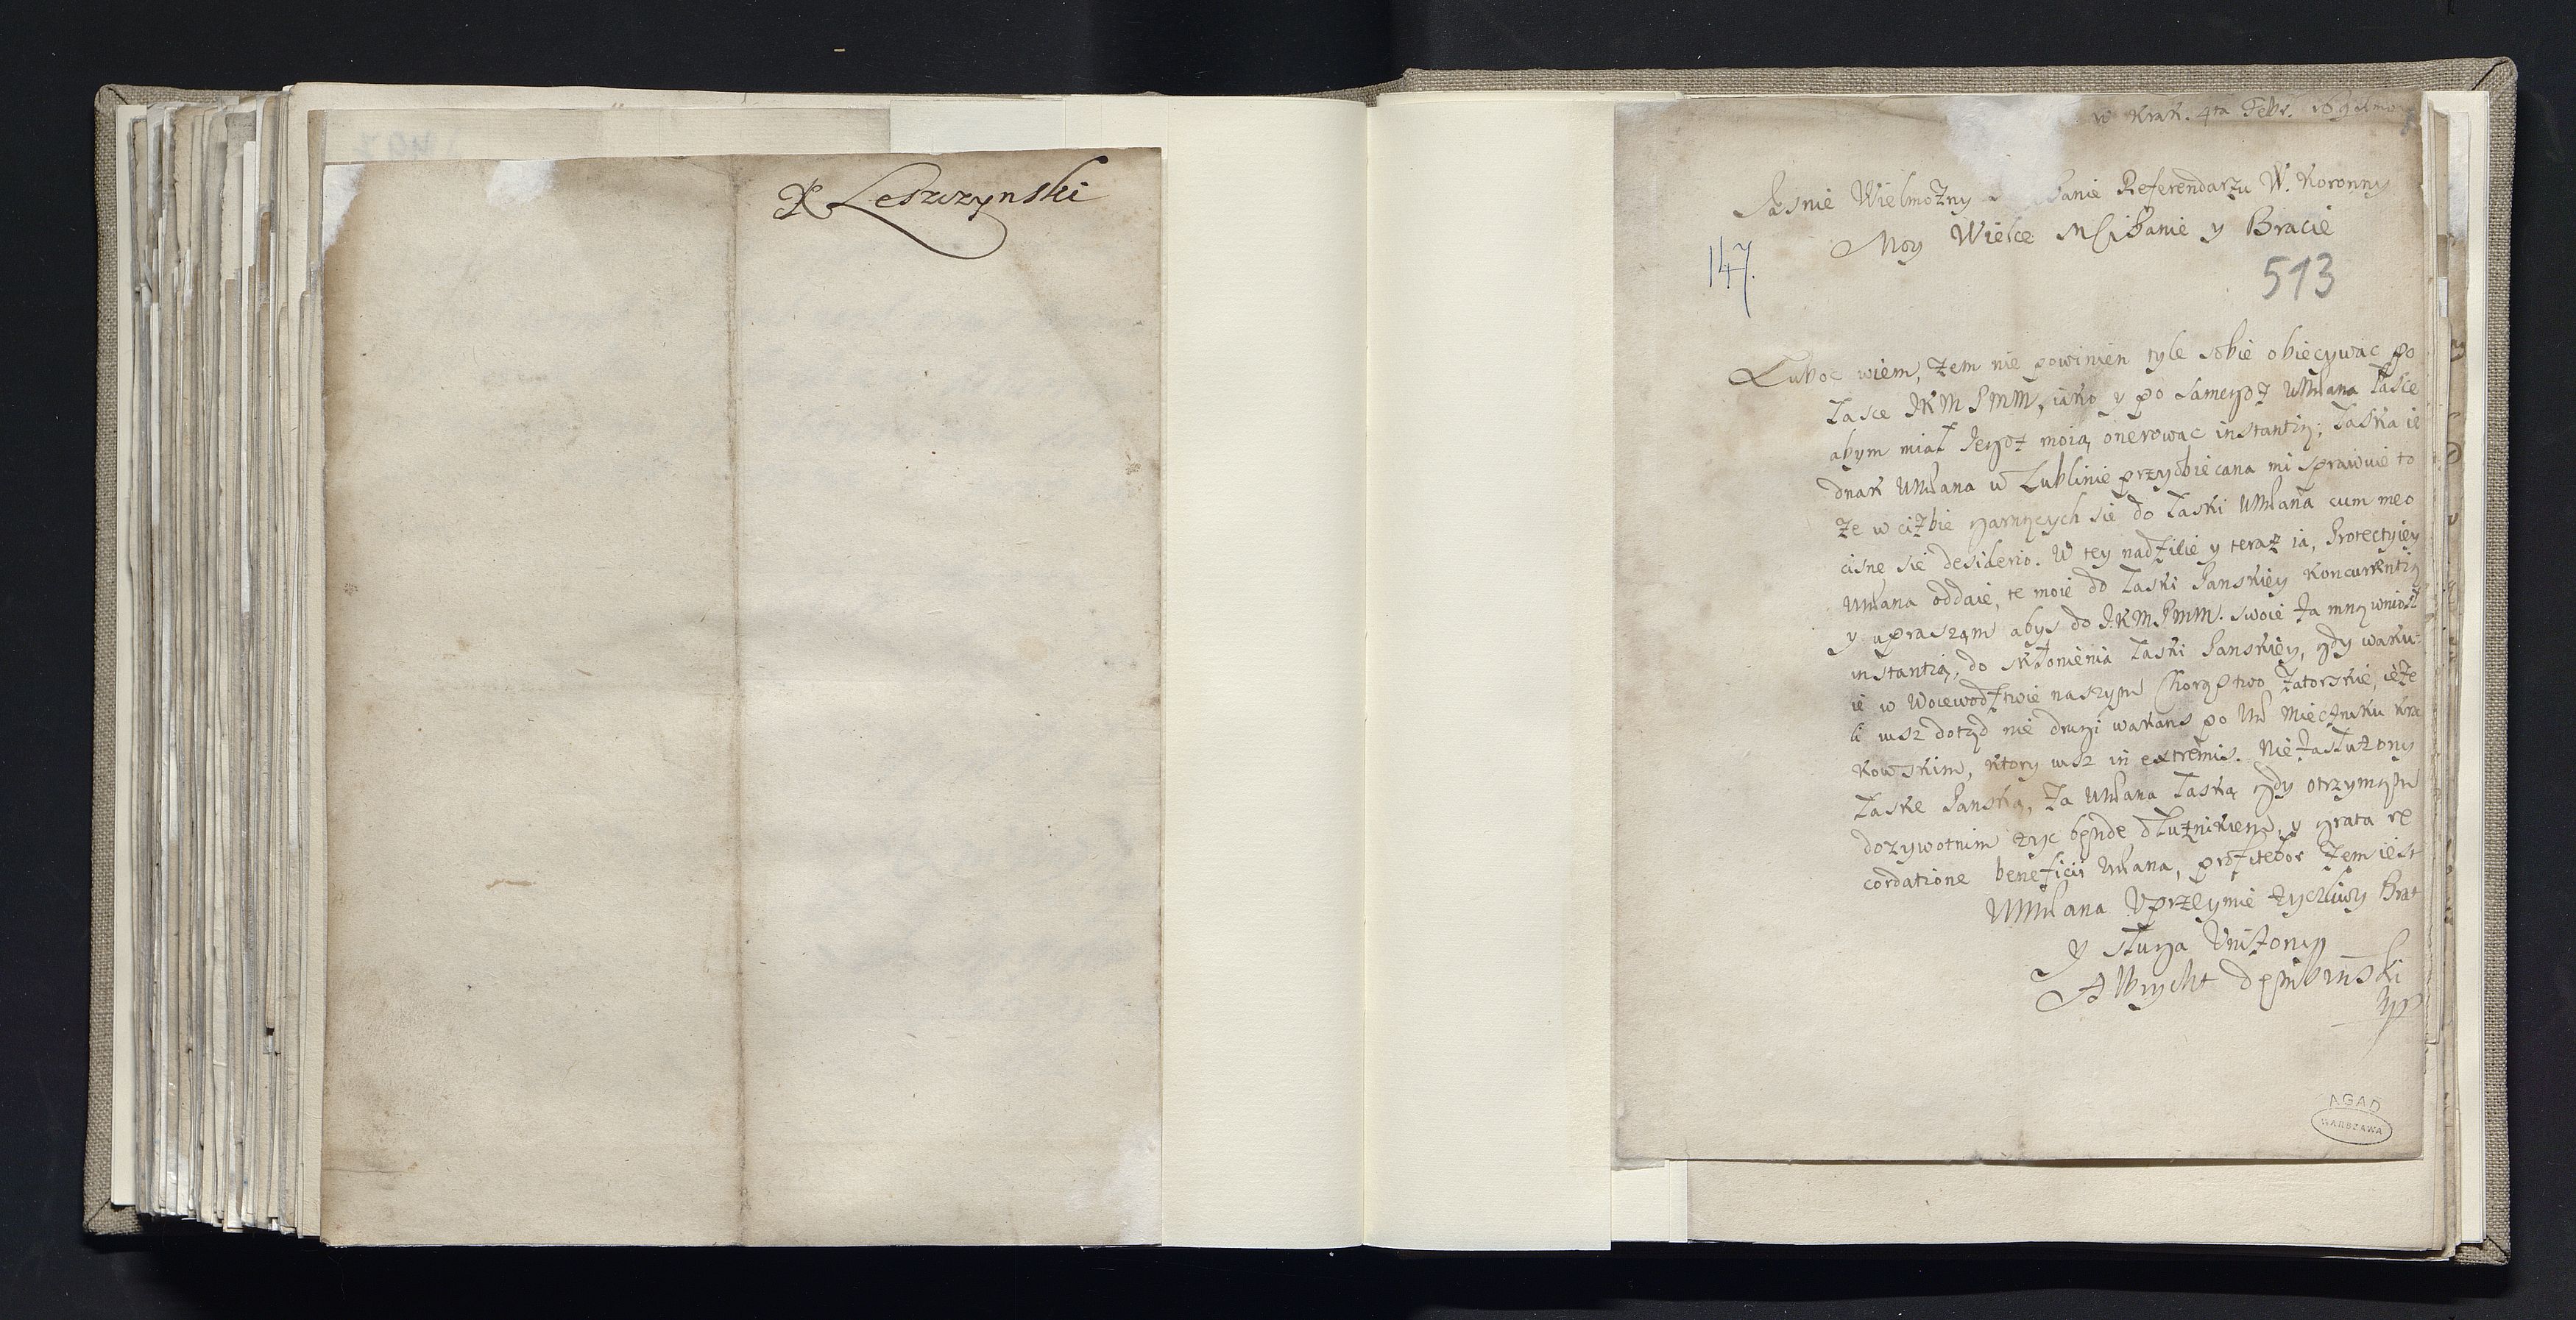 Leszczynski
w Krak. 4ta Febr.
Jasnie Wielmozny Panie Referendarzu W. Koronny
Moy Wielce MsciPanie y Bracie
147.
513
Luboc wiem, zem nie powinien tyle sobie obiecywac po
łasce JKM PMM, iako y po sameyoz WMPana łasce
abym miał Jegoz moią onerowac instantią; łaska ie
dnak WMPana w Lublinie przyobiecana mi sprawuie to
ze w ciżbie garnących się do łaski WMPana cum meo
cisne się desiderio. W tey nadziei y teraz ia, Protectyiey
WMPana oddaie, te moie do łaski Panskiey koncurrentią
y upraszam abys do J.K.M.PMM. swoie za mną wniosł
instantią, do skłonienia łaski Panskiey, gdy waku-
ie w Woiewodztwie naszym Chorąstwo Zatorskie, ieże
li iusz dotąd nie drugi wakans po Miecznku Kra
kowskim, ktory iusz in extremis. Niezasłużony
łaske Panską, za WMPana łaską gdy otrzymam
dozywotnim zyc będe dłużnikiem, y grata re
cordatione beneficii WMPana, profitebor zem iest
WMMPana Uprzeymie życzliwy Brat
y sługa Uniżony
Albrycht Dembinski
mp
AGAD
WARSZAWA